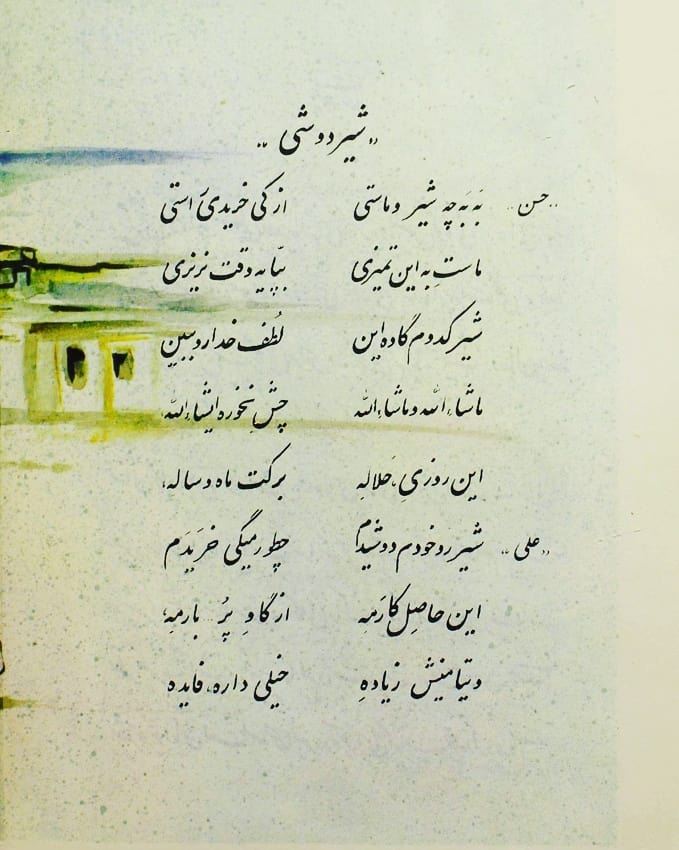 «شیردوشی»
«حسن» بَه بَه چه شیر و ماستی از کی خریدی راستی
ماستِ به این تمیزی بپّا یه وقت نریزی
شیر کدوم گاوه این لُطف خدا رو ببین
ماشاءالله و ماشاءالله چِش نِخوره ایشاءالله
این روزیِ حَلالِه برکت ماه و ساله
«علی» شیر رو خودم دوشیدم چطور میگی خَریدَم
این حاصِلِ کارَمِه از گاوِ پُر بارمِه
ویتامینش زیادهِ خیلی داره، فایده